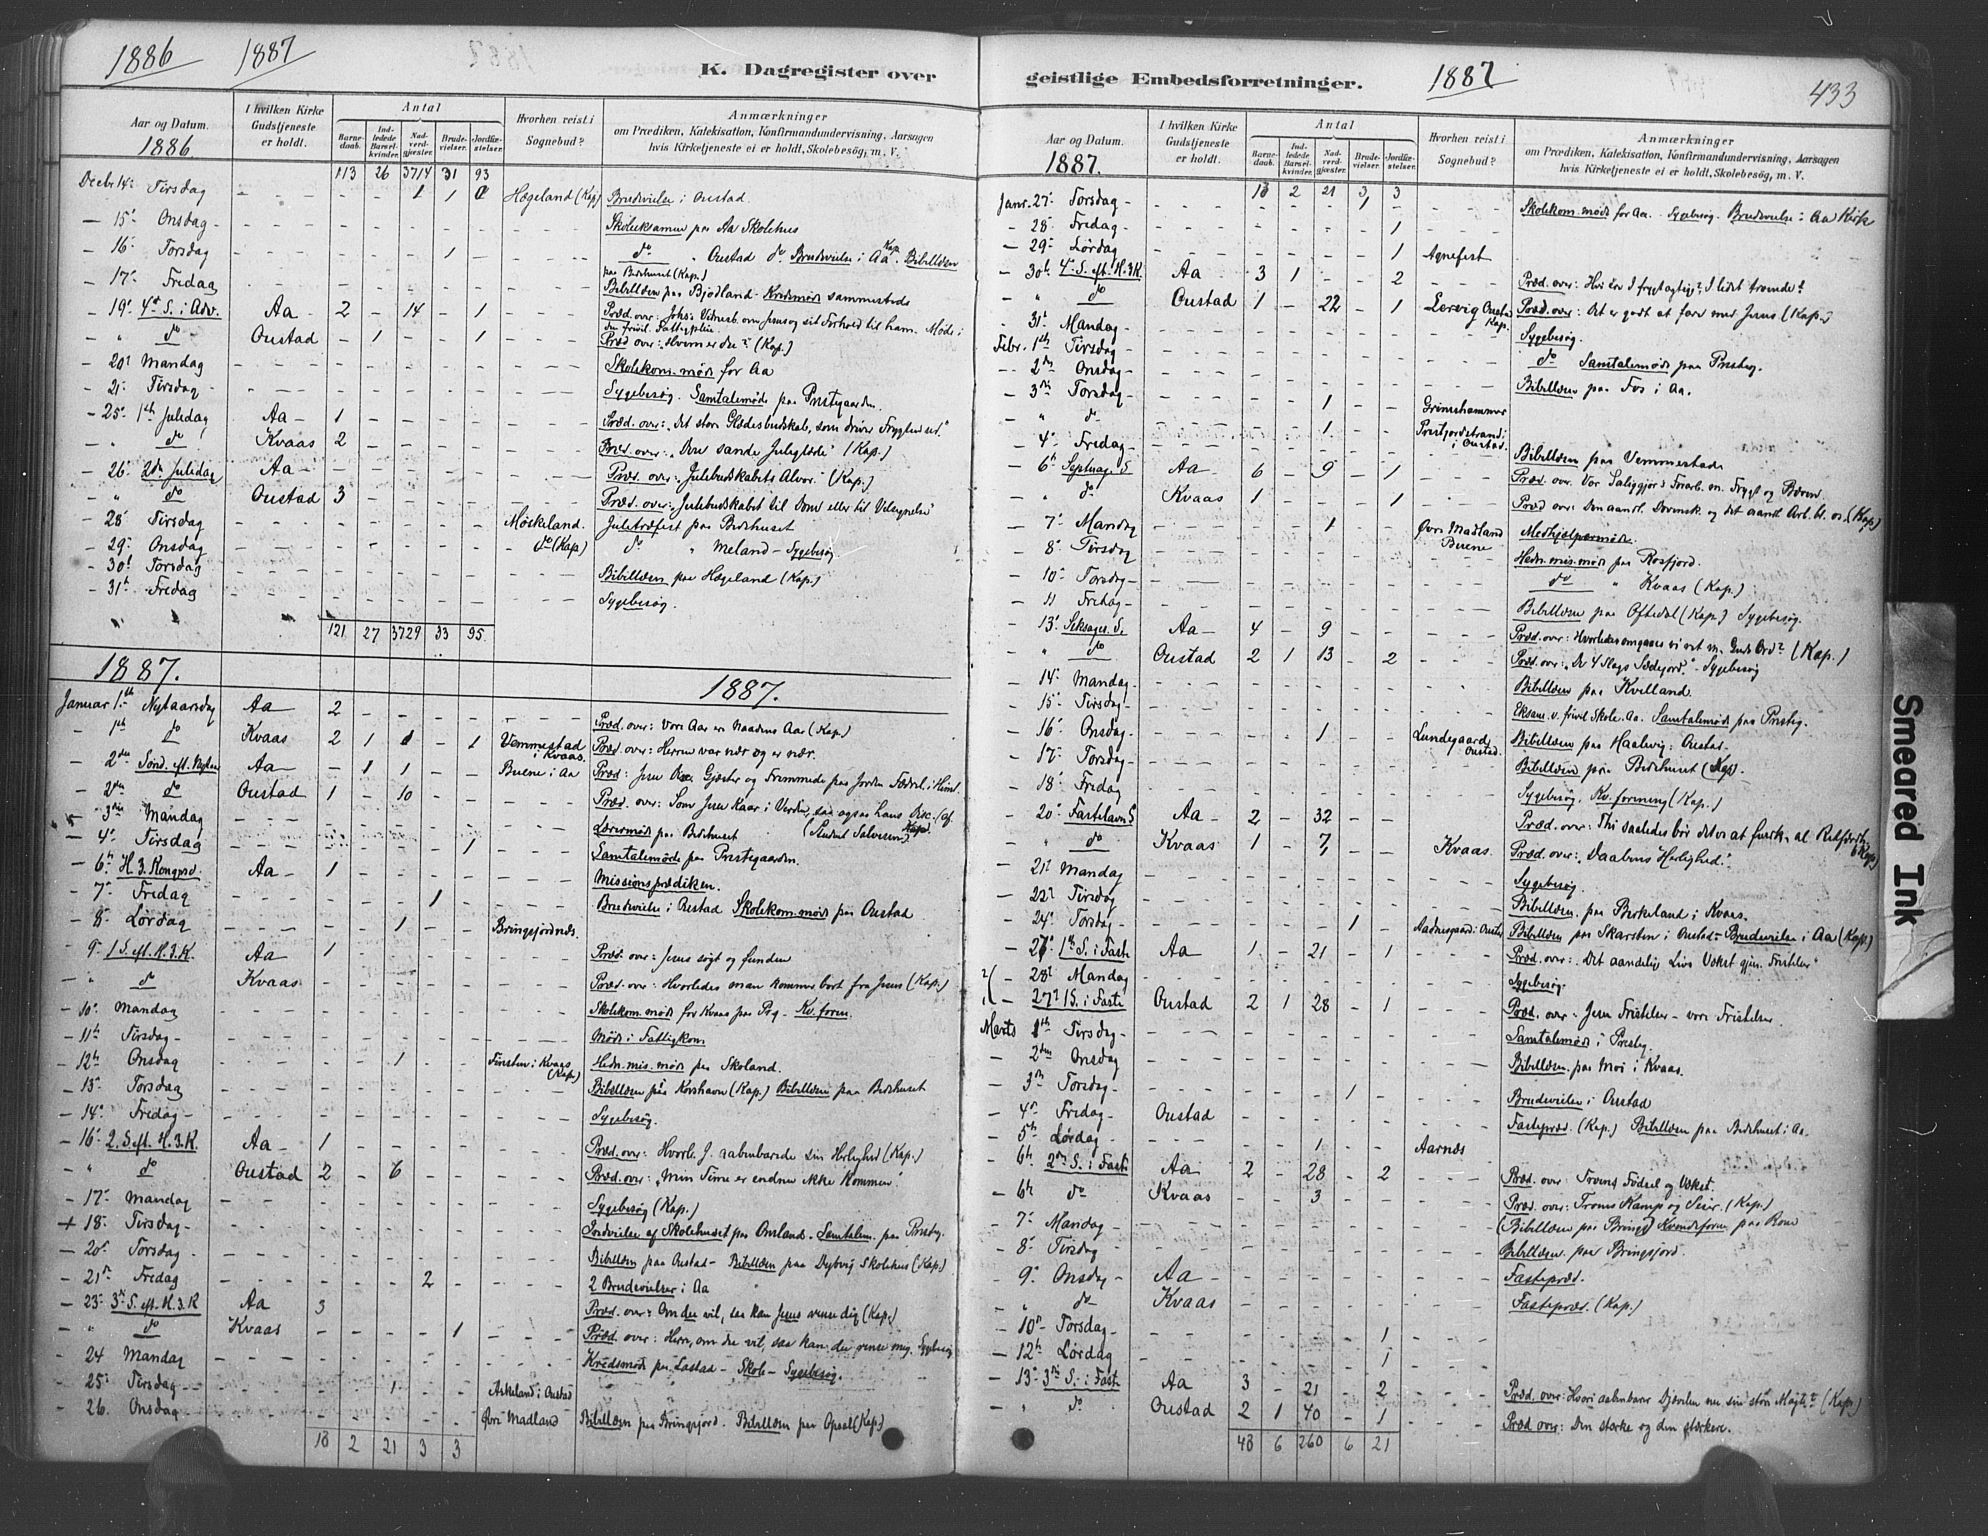 1886 1887
K. Dagregister over
Aar og Datum. 1886.
I hvilken Kirke Gudstjeneste er holdt.
Antal
Barne-daab. Ind-ledede Barsel-kvinder. Nad-verd-gjæster. Brude-vielser. Jordfæ-stelser.
Hvorhen reist i Sognebud?
Anmærkninger
om Prædiken, Katekisation, Konfirmandundervisning, Aarsagen
hvis Kirketjeneste ei er holdt, Skolebesøg, m. V.
113 26 3714 31 93
Decbr 14. Tirsdag - - - 1 1 Hægeland (Kap) Brudevielse i Oustad.
— 15. Onsdag - Skoleksamen paa Aa Skolehus
— 16. Torsdag - - - 1 - do " Oustad do Brudevielse i Aa Kap. Bibellæsn
paa Bedehuset (Kap.)
— 17. Fredag Bibellæsn paa Bjodland - Kredsmøde sammesteds
— 19. 4de S. i Adv. Aa - 2 - 14 - 1 Præd. over: Johs: Vidnesb. om Jesus og sit Forhold til ham. Møde i
den frivil. Fattigpleie
" do Oustad - 1 - - 1 Præd over: "Hvem er du?" (Kap.)
— 20. Mandag Skolekom. møde for Aa
— 21. Tirsdag - Sygebesøg. Samtalemøde paa Prstgaarden.
— 25. 1ste Juledag Aa - 1 Præd. over: "Det store Glædesbudskab, som driver Frygten ud."
— " do Kvaas 2 Præd. over: "Den sande Juleglæde" (Kap.)
— 26. 2den Juledag Aa - Præd. over: "Julebudskabets Alvor." (Kap.)
" do Oustad 3 Præd. over: Julebudskabet til Dom eller til Velsignelse"
— 28. Tirsdag Møskeland. Juletræfest paa Bedehuset
— 29. Onsdag do (Kap) do " Meland - Sygebesøg
— 30. Torsdag Bibellæsn paa Hægeland (Kap.)
— 31. Fredag Sygebesøg.
121 27 3729 33 95.
1887. 1887.
Januar 1ste Nytaarsdag Aa 2 Præd. over: Vort Aar er Naadens Aar (Kap.)
- 1ste do Kvaas 2 1 1 - 1 Vemmestad i Kvaas. Præd. over: Herren var nær og er nær.
- 2den Sønd. eft. Nytaar Aa - - 1 1 - - Buene i Aa Præd: Gjæster og Fremmede paa Jorden
- 2den do Oustad 1 - 10 Præd. over: Som Jesu Kaar i Verden, saa ogsaa hans Disc. (af
— 3die Mandag Lærermøde paa Bedehuset (Student Salvesen)
— 4. Tirsdag 1 Samtalemøde paa Prestegaarden.
— 6te H. 3. Kongersd. Aa - 1 Missionsprædiken.
— 7. Fredag 1 Brudevielse i Oustad Skolekom. møde paa Oustad
— 8. Lørdag 1 Bringsjordnæs.
— 9. 1 S. eft. H. 3. K. Aa 1 Præd. over: Jesus søgt og funden
" do Kvaas Præd. over: Hvorledes man kommer bort fra Jesus (Kap.)
— 10. Mandag Skolekom. møde for Kvaas paa Prg. Kv. foren.
— 11te Tirsdag - Møde i Fattigkom.
— 12te Onsdag 1 i Kvaas (Kap) Hedn. mis. møde paa Skoland.
— 13. Torsdag Bibellæsn paa Korshavn (Kap.) Bibellæsn paa Bedehuset
— 14. Fredag - Sygebesøg.
— 16. 2. S. eft. H. 3. K. Aa - 1 Præd. over: Hvorl. J. aabenbarede sin Herlighed (Kap.)
" do Oustad 2 - 6 Præd. over: "Min Time er endnu ikke kommen"
— 17. Mandag Sygebesøg (Kap.)
+ 18. Tirsdag - Indvielse af Skolehuset paa Ousland. Samtalem. paa Prstg.
— 20. Torsdag - Bibellæsn paa Oustad - Bibellæsn paa Dybvig Skolehus (Kap.)
— 21. Fredag 2 2 Brudevielser i Aa
— 23. 3die S. eft. H. 3. K Aa 3 Præd. over: Om du vil, saa kan Jesus rense dig (Kap.)
" do Kvaas 1 Præd. over: Herre, om du vil, saa kan du rense mig. Sygebesøg
— 24 Mandag Kredsmøde paa Lastad - Skole - Sygebesøg.
— 25. Tirsdag - 1 Askeland i Oustad
— 26. Onsdag Øvr. Madland Bibellæsn paa Bringsjord. Bibellæsn paa Opsal (Kap.)
18 2 21 3 3
geistlige Embedsforretninger. 1887 433
Aar og Datum. 1887.
I hvilken Kirke Gudstjeneste er holdt.
Antal
Barne-daab. Ind-ledede Barsel-kvinder. Nad-verd-gjæster. Brude-vielser. Jordfæ-stelser.
Hvorhen reist i Sognebud?
Anmærkninger
om Prædiken, Katekisation, Konfirmandundervisning, Aarsagen
hvis Kirketjeneste ei er holdt, Skolebesøg, m. V.
18 2 21 3 3
Janr. 27. Torsdag - 1 Skolekom. møde for Aa. Sygebesøg. Brudevielse i Aa Kirke
— 28. Fredag - 1
— 29. Lørdag 1 Agnefest
— 30te 4de S. eft. H. 3 K. Aa 3 1 - - 2 Præd. over: Hvi ere I frygtagtige, I lidet troende?
" do Oustad 1 - 22 - 1 Lervig Oustad Kap. Præd. over: Det er godt at fare med Jesus (Kap.)
31te Mandag Sygebesøg.
Febr. 1ste Tirsdag - do Samtalemøde paa Prsteg.
— 2den Onsdag Bibellæsn paa Fos i Aa.
— 3die Torsdag - 1 Grimshammer
" do 1 Prestjordstrand i Oustad.
— 4. Fredag - Bibellæsn paa Vemmestad
— 6te Septuag. S Aa - 6 - 9 - 1 Præd. over: Vor Saliggjør. Forarb. m. Frygt og Bæven
" do Kvaas 1 - - - 1 Præd over: Den aandl. Dovensk. og det aandl. Arb. (Kap)
— 7. Mandag 1 Øvr. Madland
8. Tirsdag Buene Hedn. mis. møde paa Rosfjord.
— 10. Torsdag - do " Kvaas (Kap.)
— 11 Fredag - Bibellæsn paa Oftedal (Kap.) Sygebesøg.
— 13. Seksages. S. Aa - 4 - 9 Præd. over: Hvorledes omgaaes vi ret m. Guds Ord? (Kap.)
" do Oustad 2 1 13 - 2 Præd. over: "De 4 Slags Sædejord" - Sygebesøg
— 14. Mandag - Bibellæsn paa Kvelland.
— 15. Tirsdag - Eksam. v. frivil Skole. Aa. Samtalemøde paa Prsteg.
— 16. Onsdag - 1 Lundegaard Oustad. Bibellæsn paa Haalevig: Oustad.
— 17. Torsdag - Bibellæsn paa Bedehuset (Kap).
— 18. Fredag Sygebesøg. Kv. forening (Kap.)
— 20. Fastelavn S Aa - 2 - 32 Præd. over: Thi saaledes bør det os at fuldk. al Retfærdh. (Kap)
" do Kvaas 1 - 7 Kvaas Præd. over: "Daabens Herlighed".
— 21. Mandag Sygebesøg.
— 22. Tirsdag Bibellæsn. paa Birkeland i Kvaas.
— 24. Torsdag - 1 Aadnegaard i Oustad Bibellæsn paa Skarsten i Oustad - Brudevielse i Aa (Kap.)
— 27. 1ste S. i Faste Aa 1 - 21 - 1 Præd. over: "Det aandelig Livs Vækst gjen. Fristelser"
2/(— 28. Mandag Sygebesøg.
1/(— 27. 1 S. i Faste Oustad 2 1 28 - 1 Præd. over: Jesu Fristelser - vore Fristelser
Marts 1ste Tirsdag - Samtalemøde i Presteg.
— 2den Onsdag Bibellæsn. paa Moi i Kvaas.
— 3die Torsdag - 1 Brudevielse i Oustad
— 4. Fredag - Oustad Fastepræd. (Kap.) Bibellæsn paa Bedehuset i Aa.
— 5te Lørdag - 1 Aarnæs
— 6te 2den S. i Faste Aa - 2 - 28 - 2 Præd. over: Troens Fødsel og Vækst.
— 6te do Kvaas - - 3 Præd. over: Troens Kamp og Seier. (Kap.)
— 7. Mandag (Bibellæsn paa Brings) Kvindeforen. paa Rom
— 8. Tirsdag Bibellæsn. paa Bringsjord.
— 9. Onsdag Aa - Fastepræd.
" do Kvaas Fastepræd. (Kap.)
— 10. Torsdag - 1
— 12te Lørdag 1
— 13. 3die S. i Faste Aa 3 - 21 - 2 Præd. over: Hvori aabenbarer Djævelen nu sin store Magt? (Kap.)
" do Oustad 2 1 40 - 1 Præd over: Den stærke og den stærkere.
48 6 260 6 21
Smeared Ink